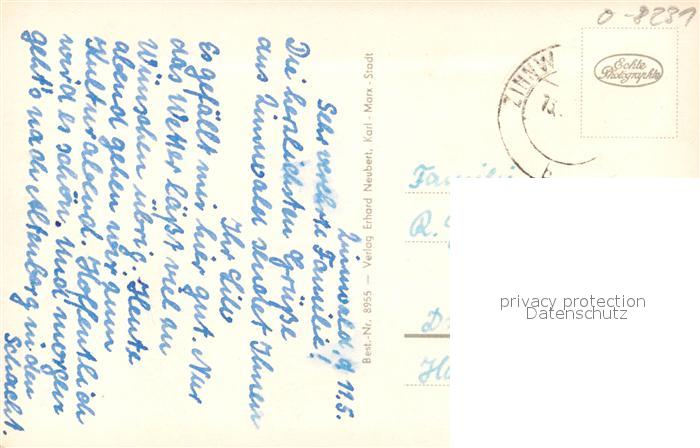 o-8231
Echte
Photographie
ZINNW
Zinnwald, d. 11.5.
Sehr verehrte Familie!
Die herzlichsten Grüße
aus Zinnwald sendet Ihnen
Ihr Lilo
Es gefällt mir hier gut. Nur
das Wetter läßt viel zu
Wünschen übrig. Heute
abend gehen wir zum
Kulturabend. Hoffentlich
wird es schön. Und morgen
geht's nach Altenberg in den
Schacht.
Best.-Nr. 8955 — Verlag Erhard Neubert, Karl-Marx-Stadt
Familie
R.
D
privacy protection
Datenschutz